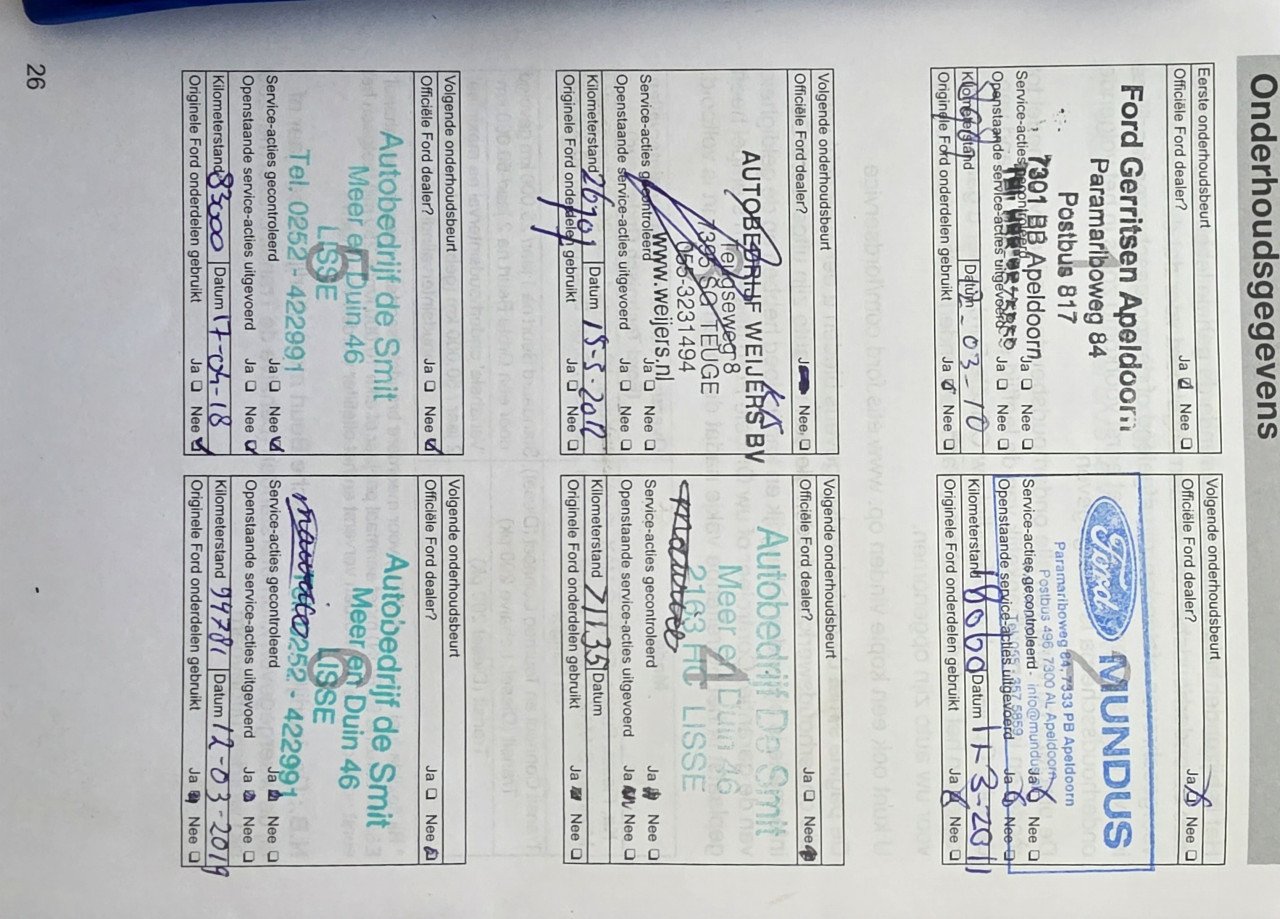 Onderhoudsgegevens
Eerste onderhoudsbeurt
Officiële Ford dealer? Ja Nee
1
Ford Gerritsen Apeldoorn
Paramariboweg 84
Postbus 817
7301 BB Apeldoorn
Service-acties gecontroleerd Ja Nee
Openstaande service-acties uitgevoerd Ja Nee
Kilometerstand Datum 12-03-10
Originele Ford onderdelen gebruikt Ja Nee
Volgende onderhoudsbeurt
Officiële Ford dealer? Ja Nee
2
Ford MUNDUS
Paramariboweg 84 7333 PB Apeldoorn
Postbus 496, 7300 AL Apeldoorn
Service-acties gecontroleerd Ja Nee
Openstaande service-acties uitgevoerd Ja Nee
Kilometerstand 18060 Datum 11-3-2011
Originele Ford onderdelen gebruikt Ja Nee
Volgende onderhoudsbeurt
Officiële Ford dealer? Nee
AUTOBEDRIJF WEIJERS BV
Teugseweg 8
7395 SG TEUGE
055-3231494
www.weijers.nl
Service-acties gecontroleerd Ja Nee
Openstaande service-acties uitgevoerd Ja Nee
Kilometerstand 26701 Datum 15-5-2012
Originele Ford onderdelen gebruikt Ja Nee
Volgende onderhoudsbeurt
Officiële Ford dealer? Ja Nee
4
Autobedrijf De Smit
Meer en Duin 46
2163 HC LISSE
maurice
Service-acties gecontroleerd Ja Nee
Openstaande service-acties uitgevoerd Ja Nee
Kilometerstand 71135 Datum
Originele Ford onderdelen gebruikt Ja Nee
Volgende onderhoudsbeurt
Officiële Ford dealer? Ja Nee
5
Autobedrijf de Smit
Meer en Duin 46
LISSE
Tel. 0252 - 422991
Service-acties gecontroleerd Ja Nee
Openstaande service-acties uitgevoerd Ja Nee
Kilometerstand 83000 Datum 17-04-18
Originele Ford onderdelen gebruikt Ja Nee
Volgende onderhoudsbeurt
Officiële Ford dealer? Ja Nee
6
Autobedrijf de Smit
Meer en Duin 46
LISSE
0252 - 422991
Service-acties gecontroleerd Ja Nee
Openstaande service-acties uitgevoerd Ja Nee
Kilometerstand 94781 Datum 12-03-2019
Originele Ford onderdelen gebruikt Ja Nee
26